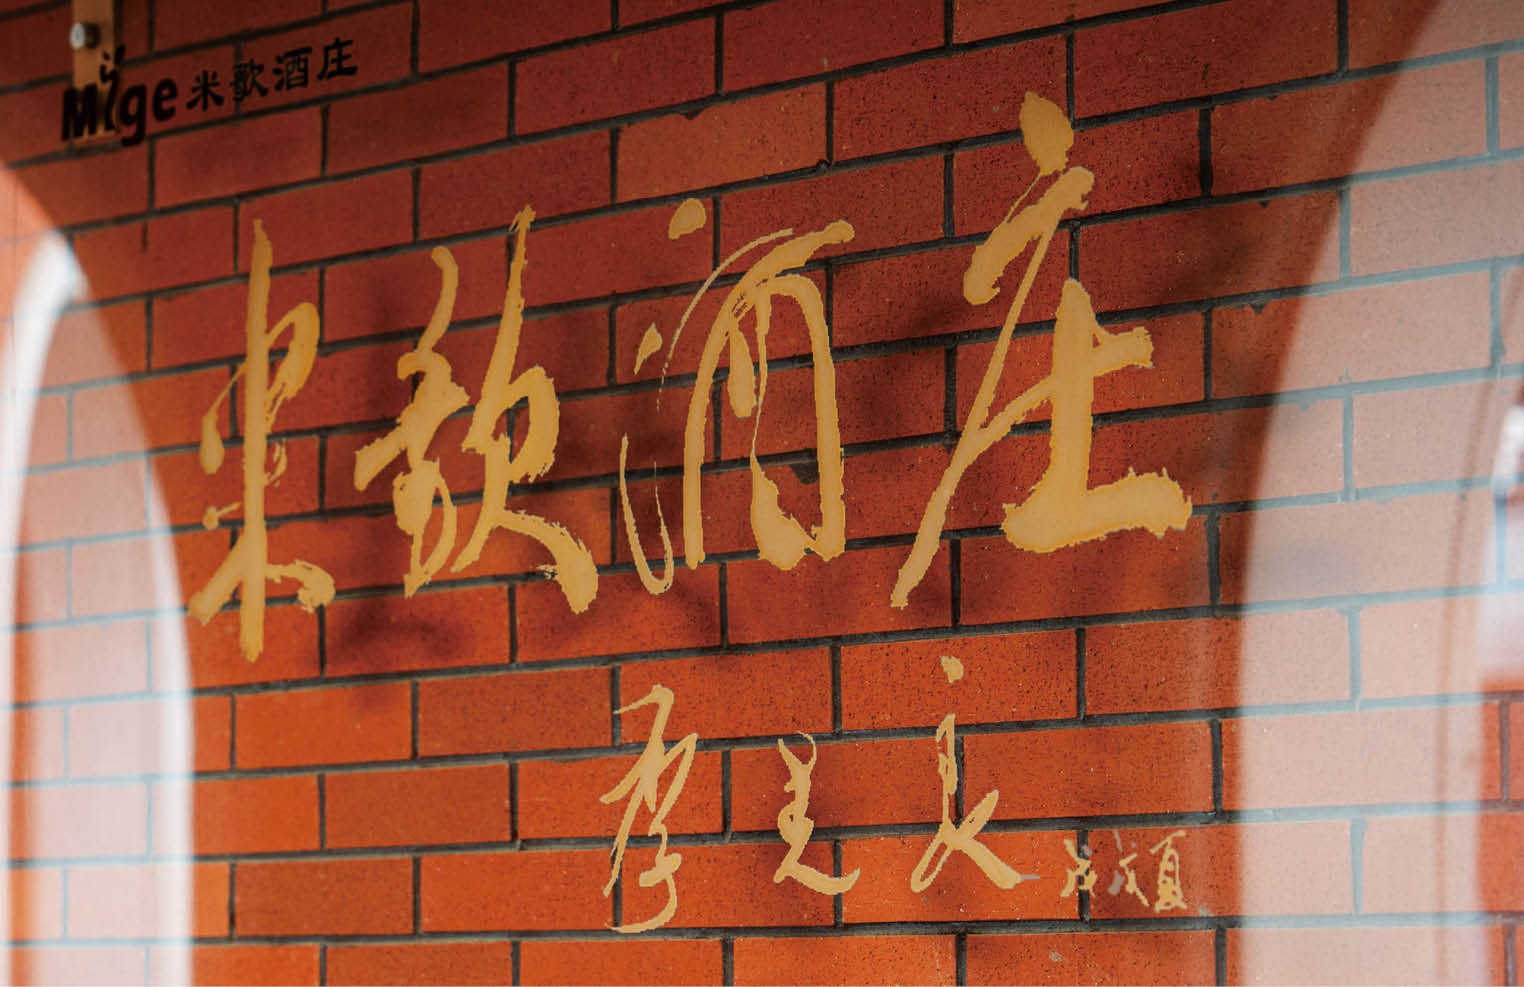 Mige 米歌酒庄
米歌酒庄
李光永 戊戌夏